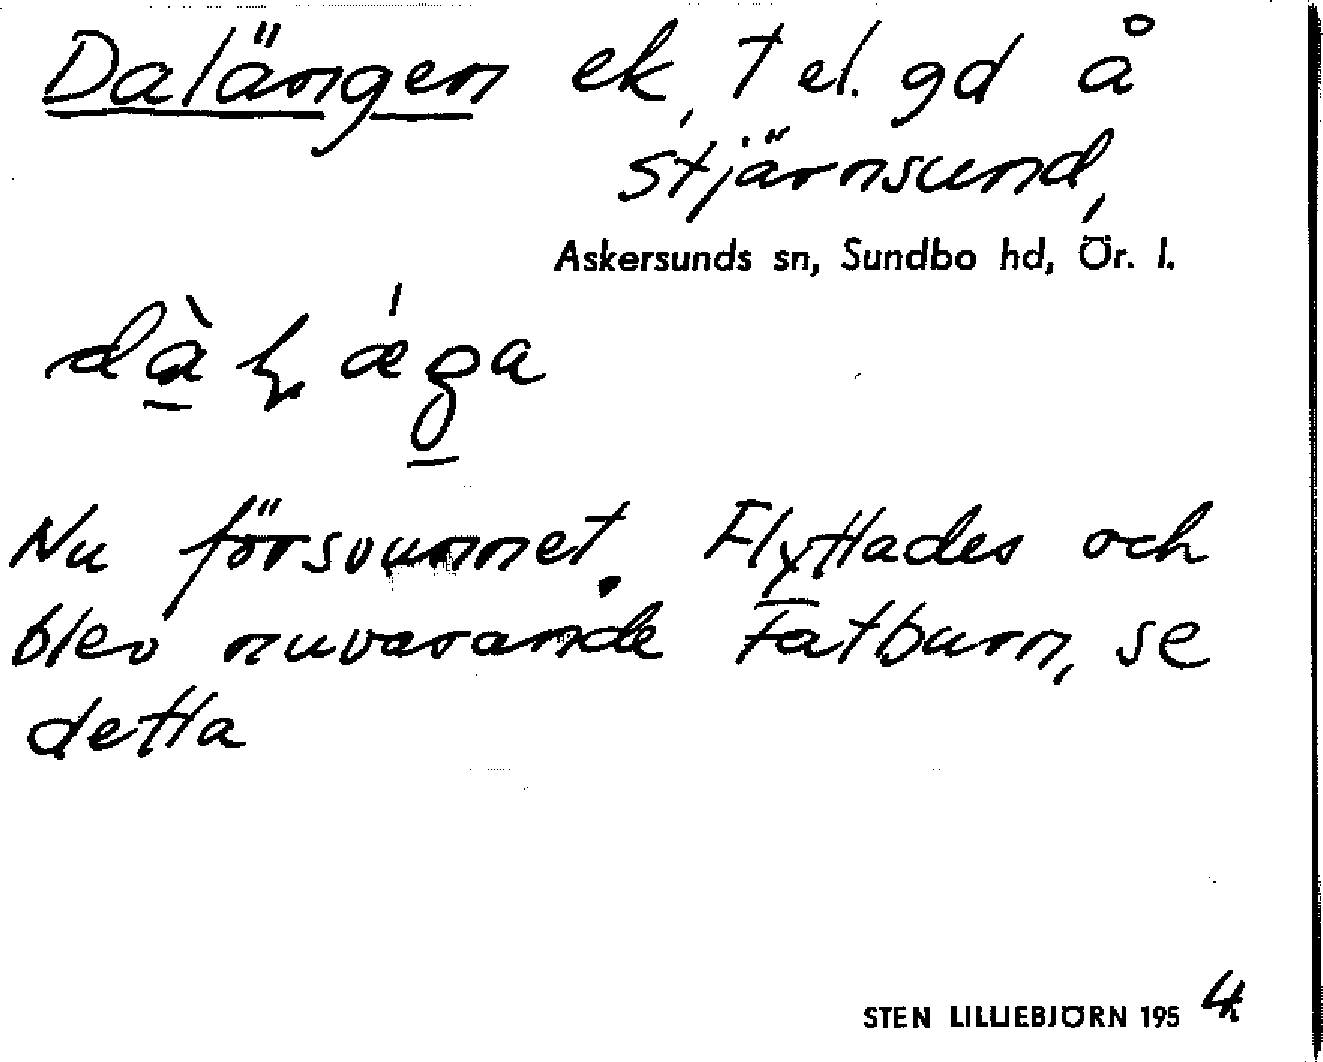 Dalängen ek, T el. gd å
Stjärnsund,
Askersunds sn, Sundbo hd, Ör. l.
Nu försvunnet. Flyttades och
blev nuvarande Fatburn, se
detta
STEN LILLIEBJÖRN 1954